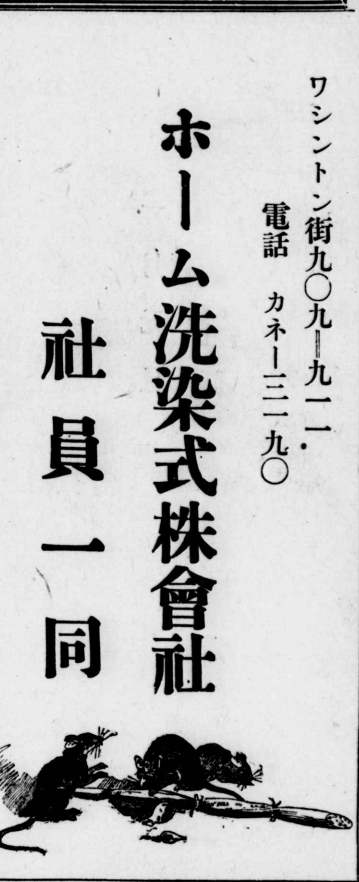 ワシントン街九〇九＝九一一．
電話 カネー三一九〇
ホーム洗染式株會社
社員一同